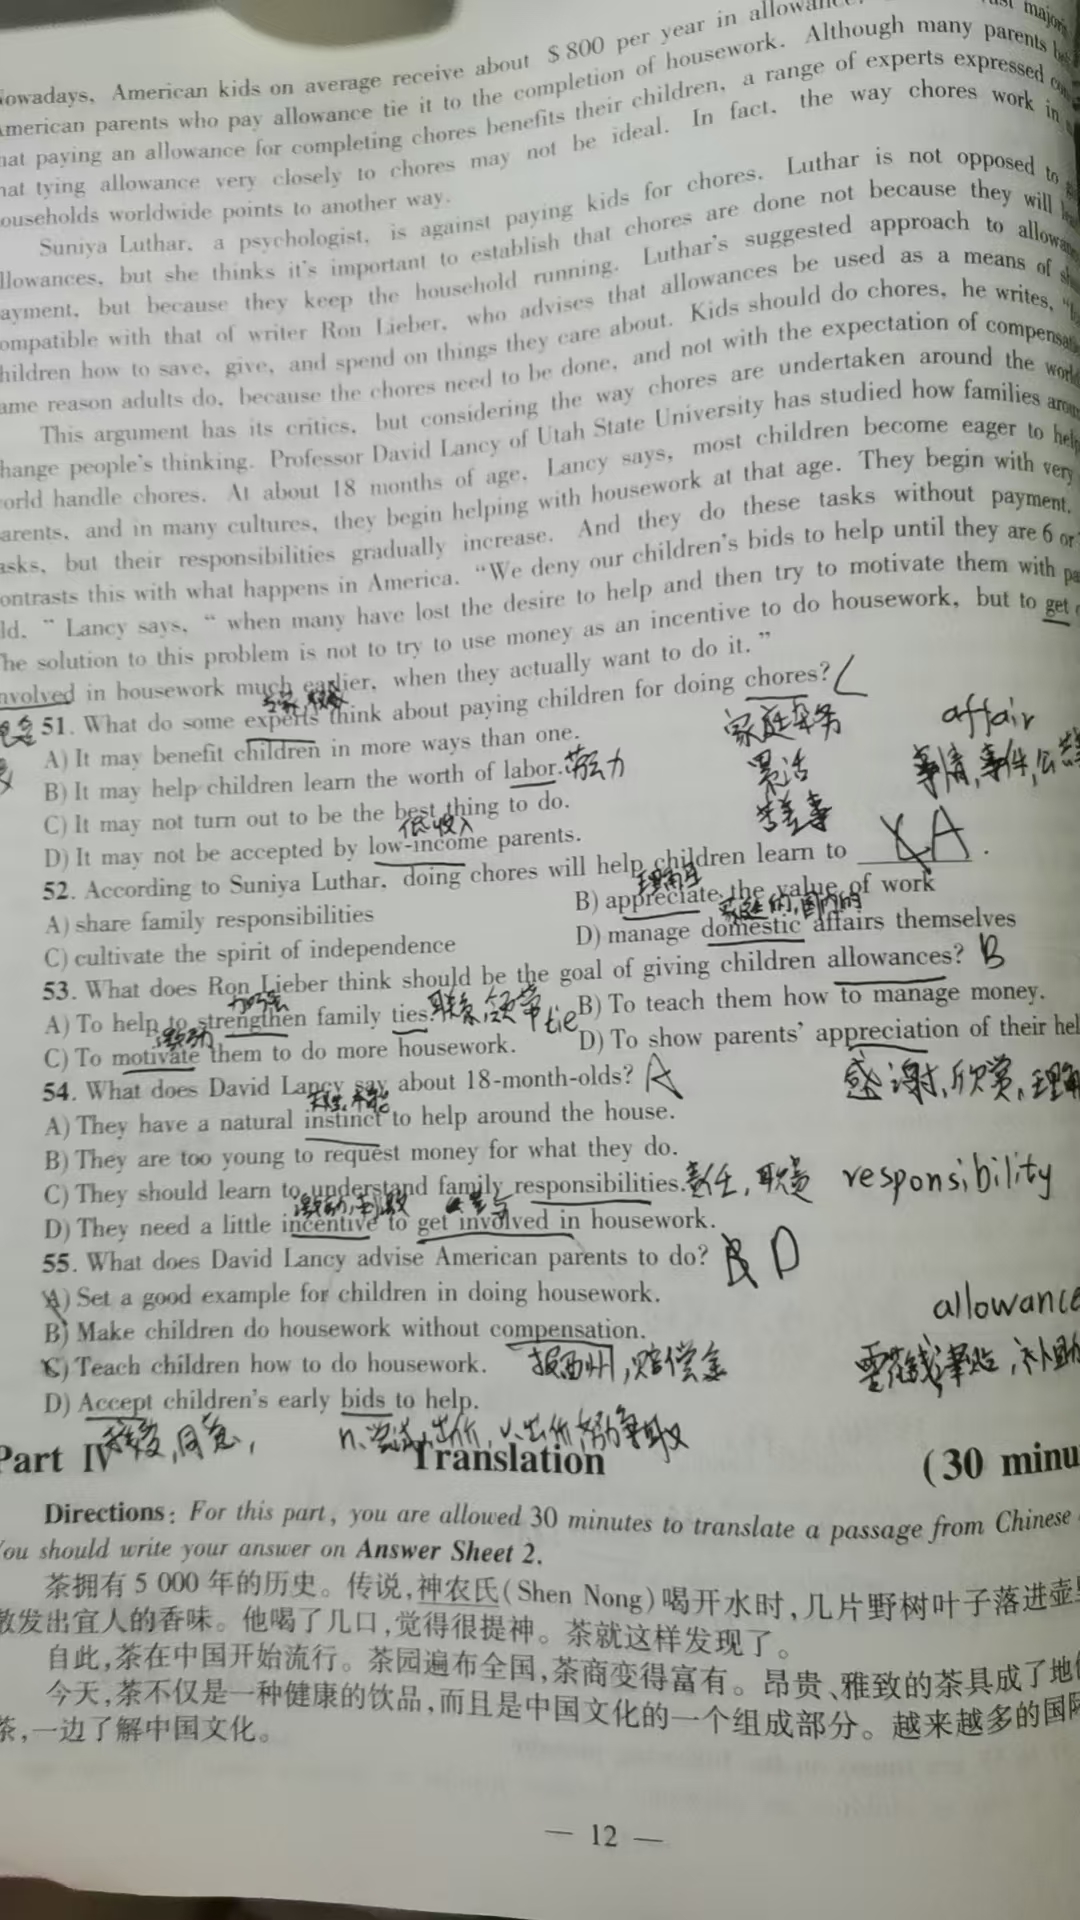 Nowadays, American kids on average receive about $800 per year in allowance.
American parents who pay allowance tie it to the completion of housework. Although many parents
that paying an allowance for completing chores benefits their children, a range of experts expressed
that tying allowance very closely to chores may not be ideal. In fact, the way chores work in
households worldwide points to another way.
Suniya Luthar, a psychologist, is against paying kids for chores. Luthar is not opposed to
allowances, but she thinks it's important to establish that chores are done not because they will
payment, but because they keep the household running. Luthar's suggested approach to
compatible with that of writer Ron Lieber, who advises that allowances be used as a means of
children how to save, give, and spend on things they care about. Kids should do chores, he writes,
same reason adults do, because the chores need to be done, and not with the expectation of
This argument has its critics, but considering the way chores are undertaken around the
change people's thinking. Professor David Lancy of Utah State University has studied how families
world handle chores. At about 18 months of age, Lancy says, most children become eager to help
parents, and in many cultures, they begin helping with housework at that age. They begin with very
tasks, but their responsibilities gradually increase. And they do these tasks without payment.
contrasts this with what happens in America. "We deny our children's bids to help until they are 6 or
old, " Lancy says, " when many have lost the desire to help and then try to motivate them with
The solution to this problem is not to try to use money as an incentive to do housework, but to get
involved in housework much earlier, when they actually want to do it. "
51. What do some experts think about paying children for doing chores? C
家庭杂务
累活
苦差事
affair
事情,事件,公
A) It may benefit children in more ways than one.
B) It may help children learn the worth of labor. 劳动力
C) It may not turn out to be the best thing to do.
低收入
D) It may not be accepted by low-income parents.
52. According to Suniya Luthar, doing chores will help children learn to ______. A
A) share family responsibilities
B) appreciate the value of work
家庭的,国内的
C) cultivate the spirit of independence
D) manage domestic affairs themselves
53. What does Ron Lieber think should be the goal of giving children allowances? B
加强
A) To help to strengthen family ties. 联系,领带 tie
B) To teach them how to manage money.
激励
C) To motivate them to do more housework.
D) To show parents' appreciation of their
感谢,欣赏,理解
54. What does David Lancy say about 18-month-olds? A
A) They have a natural instinct to help around the house.
B) They are too young to request money for what they do.
C) They should learn to understand family responsibilities. 责任,职责 responsibility
激励,刺激 参与
D) They need a little incentive to get involved in housework.
55. What does David Lancy advise American parents to do? B D
A) Set a good example for children in doing housework.
allowance
零花钱,津贴,补助
B) Make children do housework without compensation.
报酬,赔偿金
C) Teach children how to do housework.
D) Accept children's early bids to help.
接受,同意,
n.尝试,出价,v.出价,努力争取
Part IV Translation (30
Directions: For this part, you are allowed 30 minutes to translate a passage from Chinese
You should write your answer on Answer Sheet 2.
茶拥有5 000年的历史。传说,神农氏(Shen Nong)喝开水时,几片野树叶子落进壶里
散发出宜人的香味。他喝了几口,觉得很提神。茶就这样发现了。
自此,茶在中国开始流行。茶园遍布全国,茶商变得富有。昂贵、雅致的茶具成了地
今天,茶不仅是一种健康的饮品,而且是中国文化的一个组成部分。越来越多的国际
茶,一边了解中国文化。
— 12 —